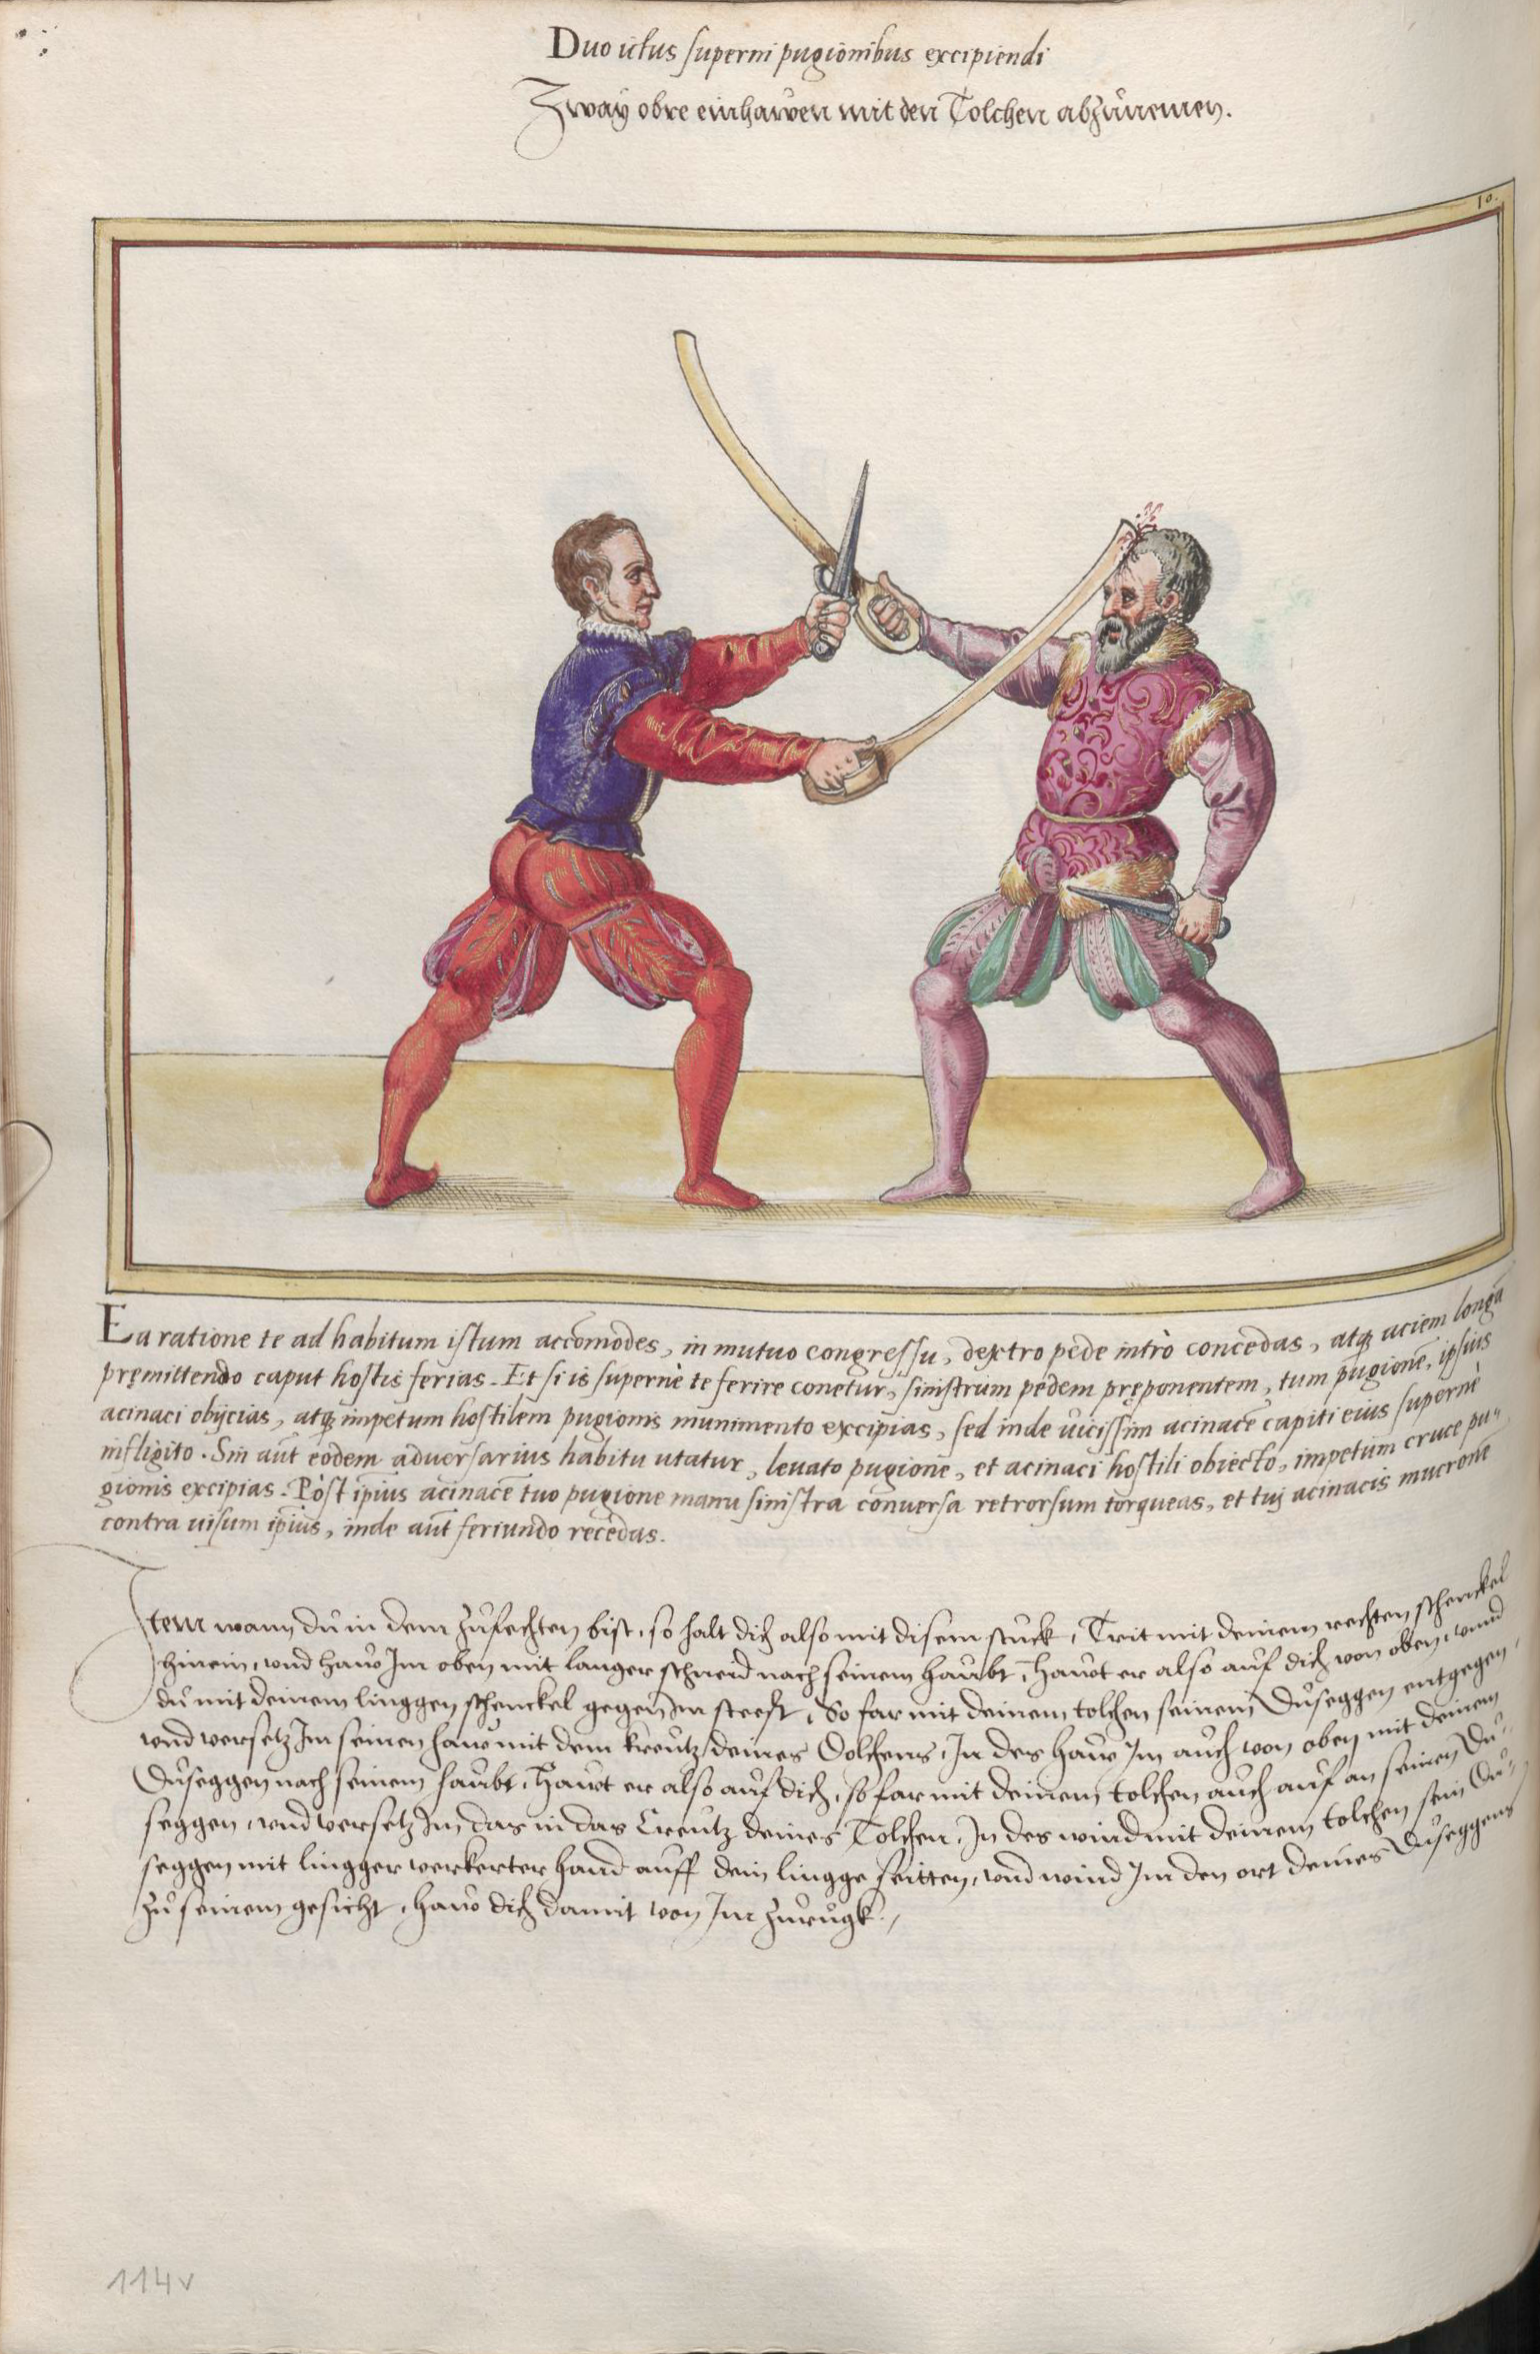 Duo ictus superni pugionibus excipiendi
Zway obre einhawen mit den Tolchen abzunemen.
10.
Ea ratione te ad habitum istum accōmodes, in mutuo congressu, dextro pede intrò concedas, atq; aciem longā
pręmittendo caput hostis ferias. Et si is supernè te ferire conetur, sinistrum pedem pręponentem, tum pugionē, ipsius
acinaci obijcias, atq; impetum hostilem pugionis munimento excipias, sed inde vicissim acinacē capiti eius supernè
infligito. Sin aūt eodem adversarius habitu utatur, levato pugione, et acinaci hostili obiecto, impetum cruce pu-
gionis excipias. Pòst ipīus acinacē tuo pugione manu sinistra conversa retrorsum torqueas, et tuj acinacis mucronē
contra visum ipīus, inde aūt feriundo recedas.
Item wann du in dem zufechten bist, so halt dich also mit disem stuck, Trit mit deinem rechten schenckel
hinein, vnd haw Im oben mit langer schneid nach seinem haubt, Hawt er also auf dich von oben, vnnd
du mit deinem linggen schenckel gegen Im steest, So far mit deinem tolchen seinem Duseggen entgegen,
vnd versetz Im seinen haw mit dem kreutz deines Dolchens, In des haw Im auch von oben mit deinem
Duseggen nach seinem haubt, Hawt er also auf dich, so far mit deinem tolchen auch auf an seinen Du-
seggen, vnd versetz Im das in das Creutz deines Tolchen, In des wind mit deinem tolchen sein Du-
seggen mit lingger verkerter hand auff dein lingge seitten, vnd wind Im den ort deines Duseggens
zu seinem gesicht, haw dich damit von Im zurugk.
114v